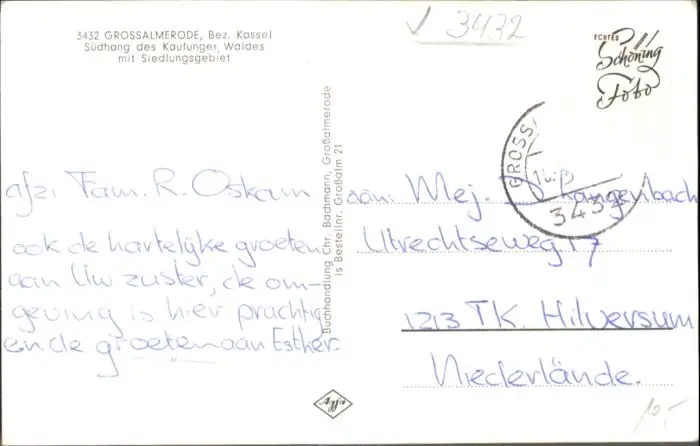 3432 GROSSALMERODE, Bez. Kassel
Südhang des Kaufunger Waldes
mit Siedlungsgebiet
√ 3432
ECHTES
Schöning
Foto
GROSS
3432
afz. Fam. R. Oskam
ook de hartelijke groeten
aan Uw zuster, de om-
geving is hier prachtig
en de groeten aan Esther.
Buchhandlung Chr. Bachmann, Großalmerode
is Bestellnr. Großalm 21
aan: Mej. Langenbach
Utrechtseweg 17
1213 TK. Hilversum
Niederlände.
10,-